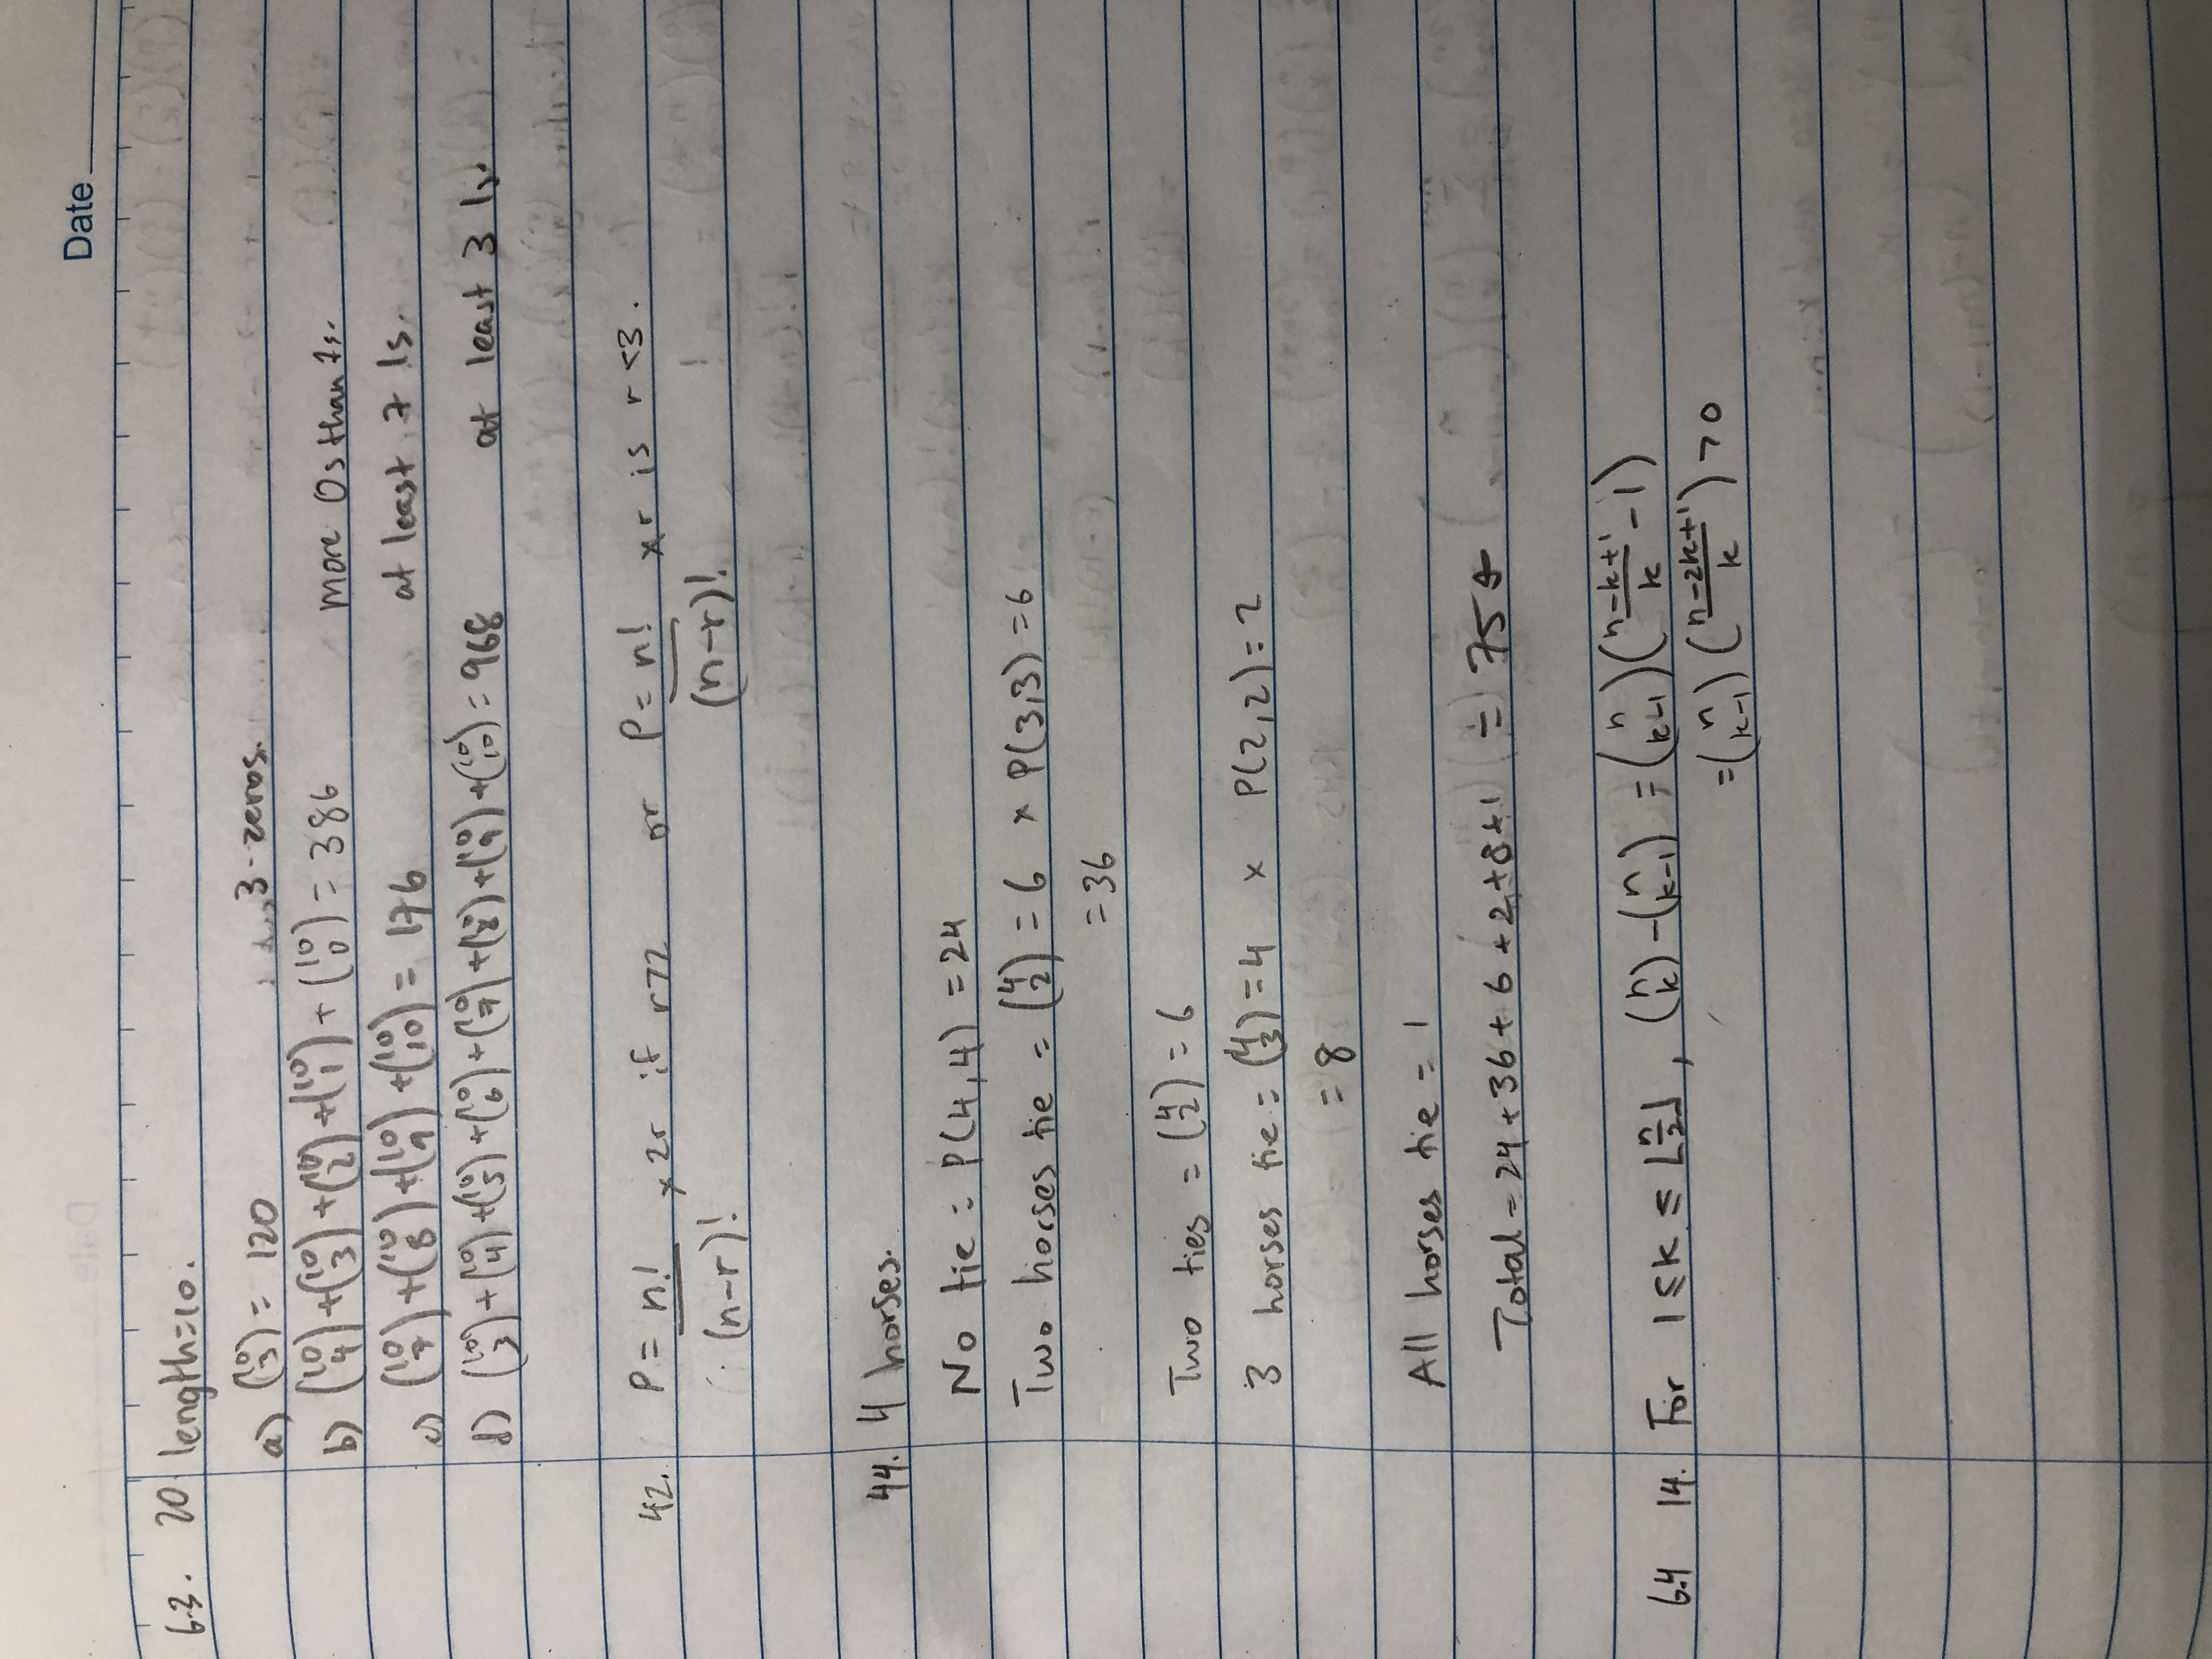 Date
6.3. 20 length=10.
a) (10 3) = 120 3-zeros.
b) (10 4) + (10 3) + (10 2) + (10 1) + (10 0) = 386 more 0s than 1s.
c) (10 7) + (10 8) + (10 9) + (10 10) = 176 at least 7 1s.
d) (10 3) + (10 4) + (10 5) + (10 6) + (10 7) + (10 8) + (10 9) + (10 10) = 968 at least 3 1s.
42. P = n! / (n-r)! × 2r if r>2 or P = n! / (n-r)! × r is r<3.
44. 4 horses.
No tie = P(4,4) = 24
Two horses tie = (4 2) = 6 × P(3,3) = 6
= 36
Two ties = (4 2) = 6
3 horses tie = (4 3) = 4 × P(2,2) = 2
= 8
All horses tie = 1
Total = 24 + 36 + 6 + 2 + 8 + 1 = 75
6.4 14. For 1 ≤ k ≤ ⌊n/2⌋, (n k) - (n k-1) = (n k-1) ((n-k+1)/k - 1)
= (n k-1) ((n-2k+1)/k) > 0